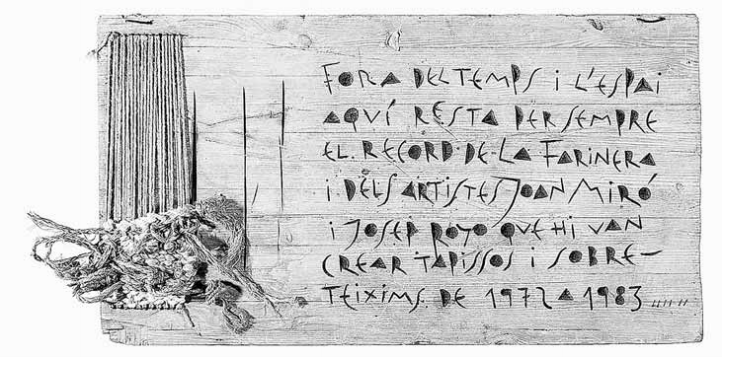 FORA DEL TEMPS i L'ESPAI
AQVÍ RESTA PER SEMPRE
EL RECORD DE LA FARINERA
i DELS ARTISTES JOAN MIRÓ
i JOSEP ROYO QVE HI VAN
CREAR TAPISSOS i SOBRE-
TEIXIMS. DE 1972 A 1983